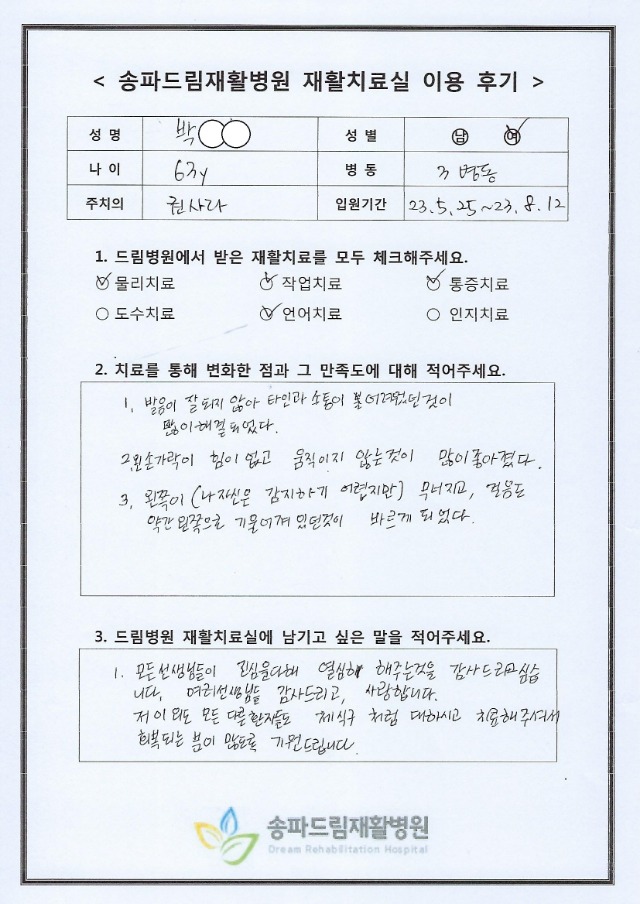 < 송파드림재활병원 재활치료실 이용 후기 >
성 명 박○○ 성 별 남 여
나 이 63y 병 동 3병동
주치의 권사라 입원기간 23.5.25~23.8.12
1. 드림병원에서 받은 재활치료를 모두 체크해주세요.
물리치료 작업치료 통증치료
도수치료 언어치료 인지치료
2. 치료를 통해 변화한 점과 그 만족도에 대해 적어주세요.
1. 발음이 잘 되지 않아 타인과 소통이 어려웠던것이
많이 해결되었다.
2. 왼손가락이 힘이 없고 움직이지 않는것이 많이 좋아졌다.
3. 왼쪽이 (나 자신은 감지하기 어렵지만) 무너지고, 걸음도
약간 왼쪽으로 기울어져 있던것이 바르게 되었다.
3. 드림병원 재활치료실에 남기고 싶은 말을 적어주세요.
1. 모든선생님들이 진심을다해 열심히 해주는것을 감사드리고싶습
니다. 여러선생님들 감사드리고, 사랑합니다.
저 이외도 모든 다른환자들도 제식구 처럼 대하시고 치료해주셔서
회복되는 분이 많도록 기원드립니다.
송파드림재활병원
Dream Rehabilitation Hospital